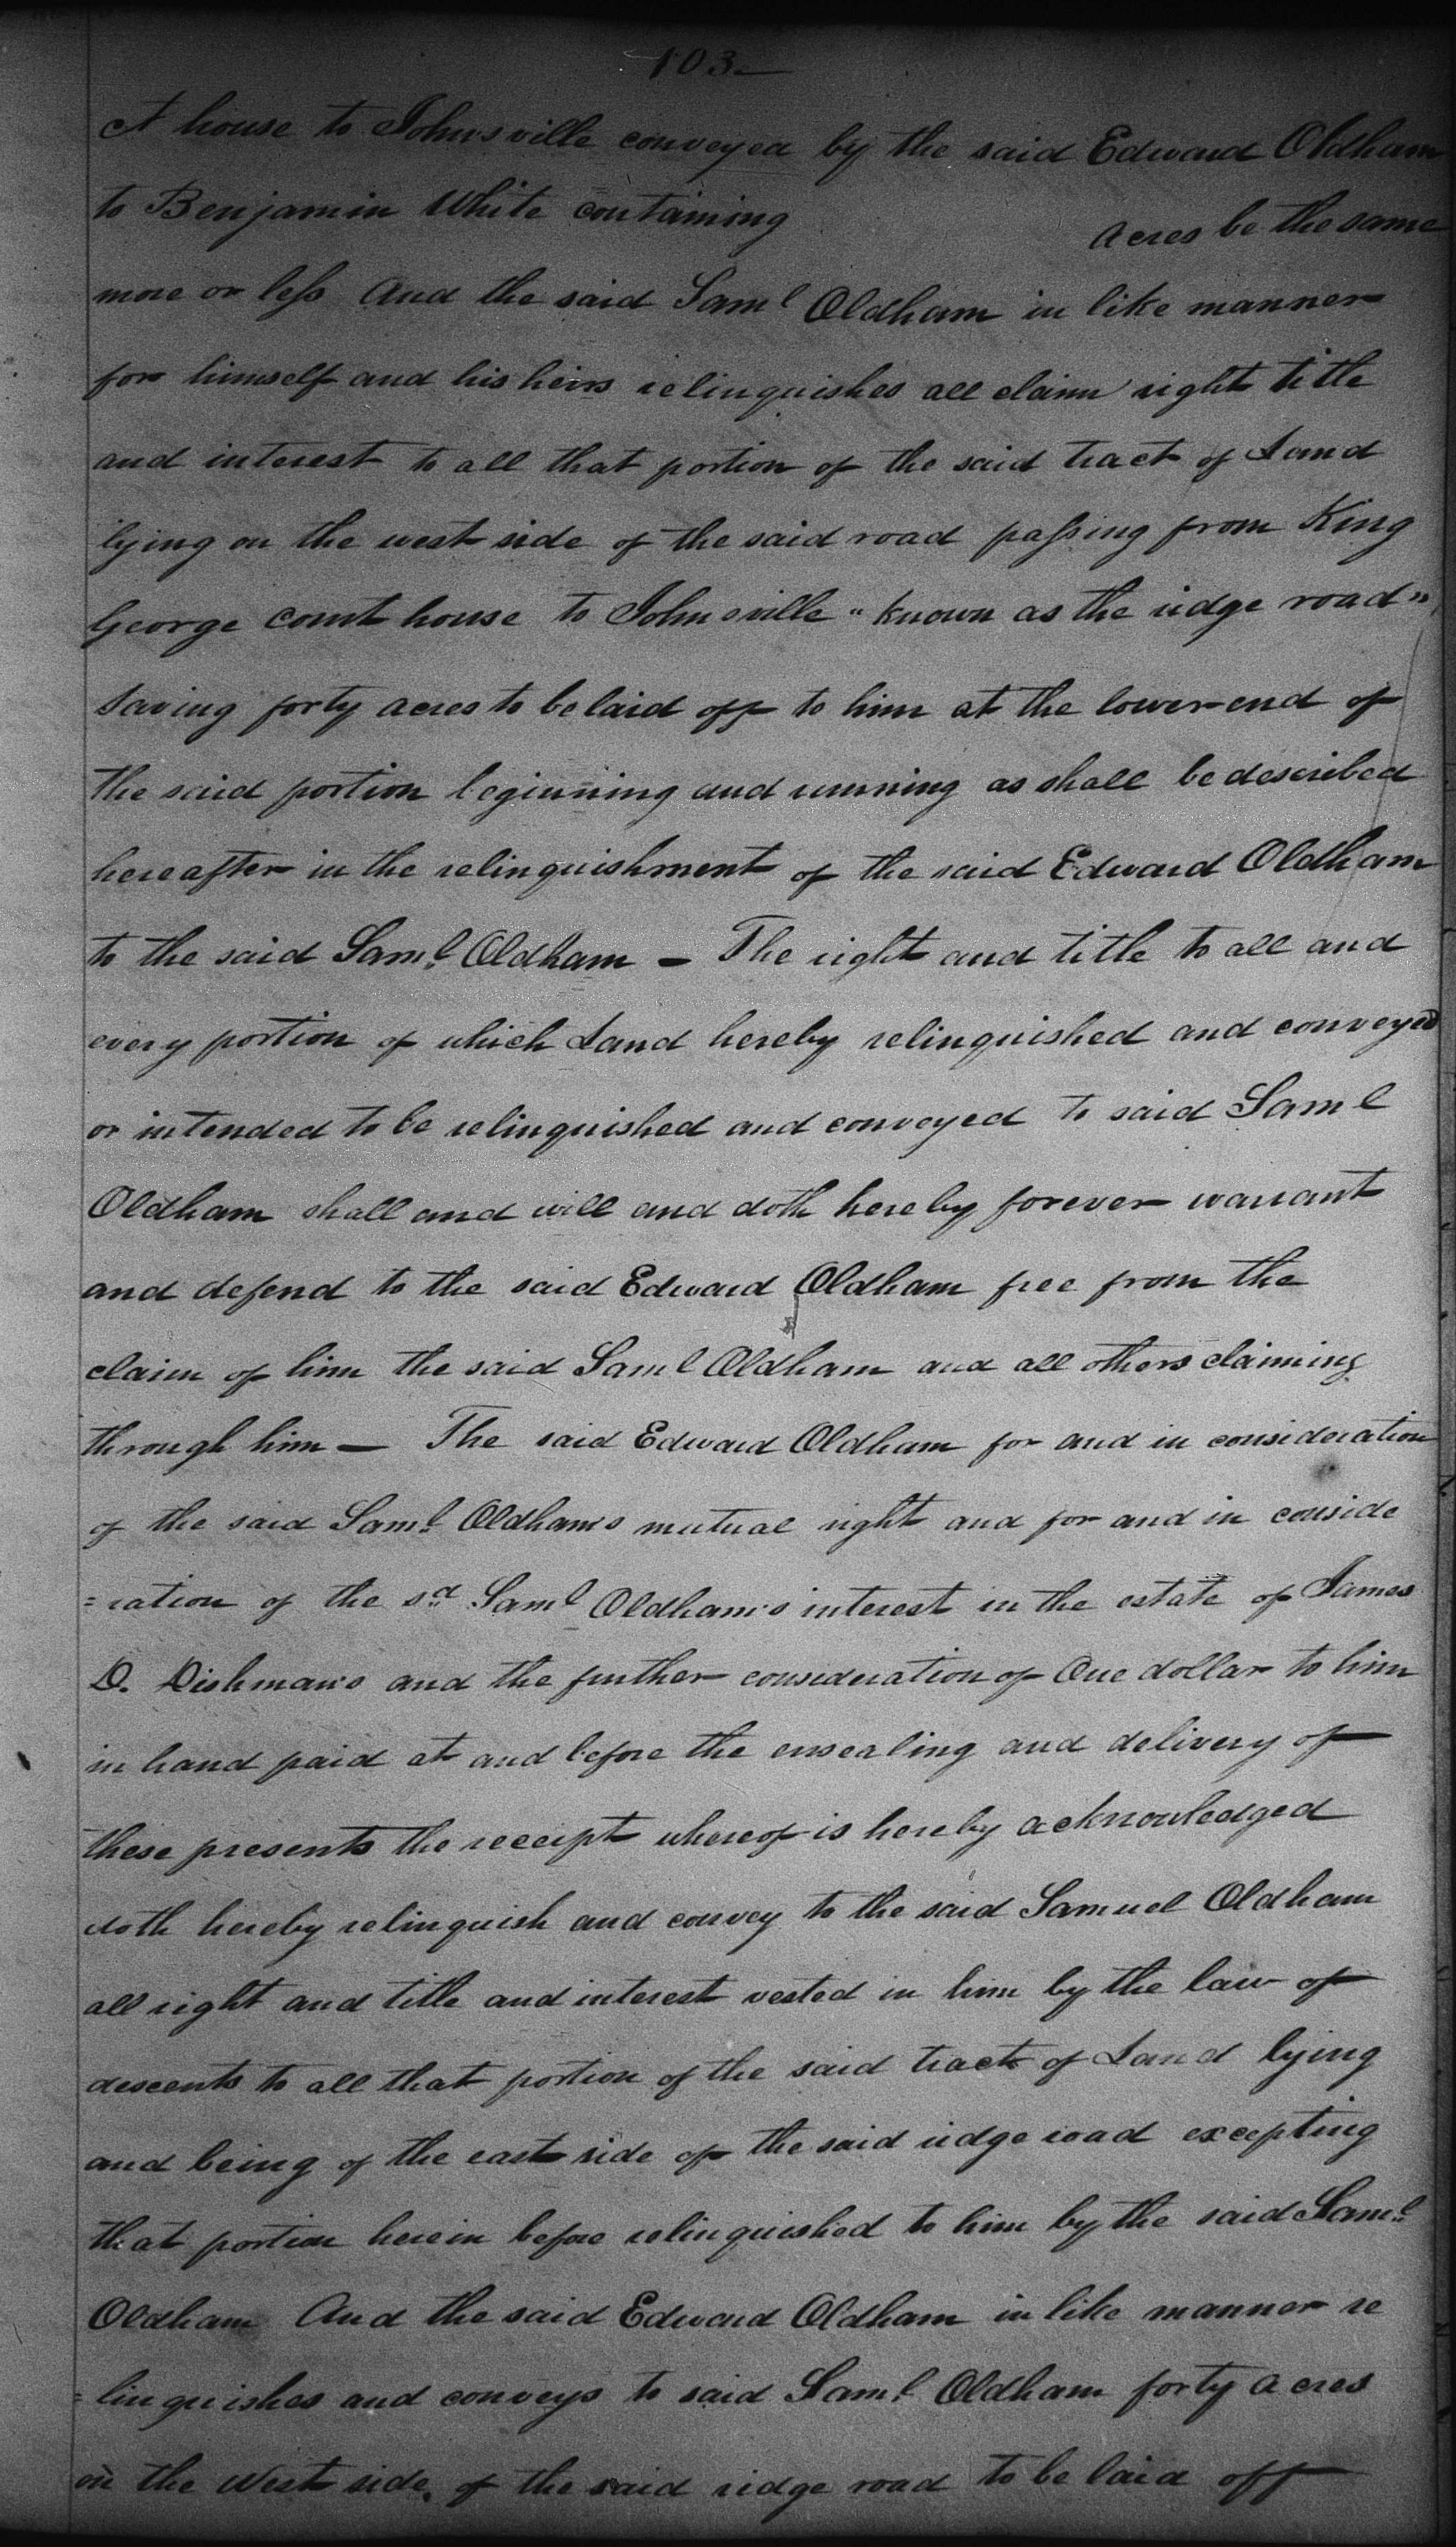 103
Ct house to Johnsville conveyed by the said Edward Oldham
to Benjamin White containing acres be the same
more or less And the said Saml Oldham in like manner
for himself and his heirs relinquishes all claim right title
and interest to all that portion of the said tract of Land
lying on the west side of the said road passing from King
George court house to Johnsville "known as the ridge road"
saving forty acres to be laid off to him at the lower end of
the said portion beginning and running as shall be described
hereafter in the relinquishment of the said Edward Oldham
to the said Saml Oldham — The right and title to all and
every portion of which Land hereby relinquished and conveyed
or intended to be relinquished and conveyed to said Saml
Oldham shall and will and doth hereby forever warrant
and defend to the said Edward Oldham free from the
claim of him the said Saml Oldham and all others claiming
through him — The said Edward Oldham for and in consideration
of the said Saml Oldhams mutual right and for and in conside
=ration of the sd Saml Oldham's interest in the estate of James
D. Dishman's and the further consideration of One dollar to him
in hand paid at and before the ensealing and delivery of
these presents the receipt whereof is hereby acknowledged
doth hereby relinquish and convey to the said Samuel Oldham
all right and title and interest vested in him by the law of
descents to all that portion of the said tract of Land lying
and being of the east side of the said ridge road excepting
that portion herein before relinquished to him by the said Saml
Oldham And the said Edward Oldham in like manner re
=linquishes and conveys to said Saml Oldham forty acres
on the West side of the said ridge road to be laid off